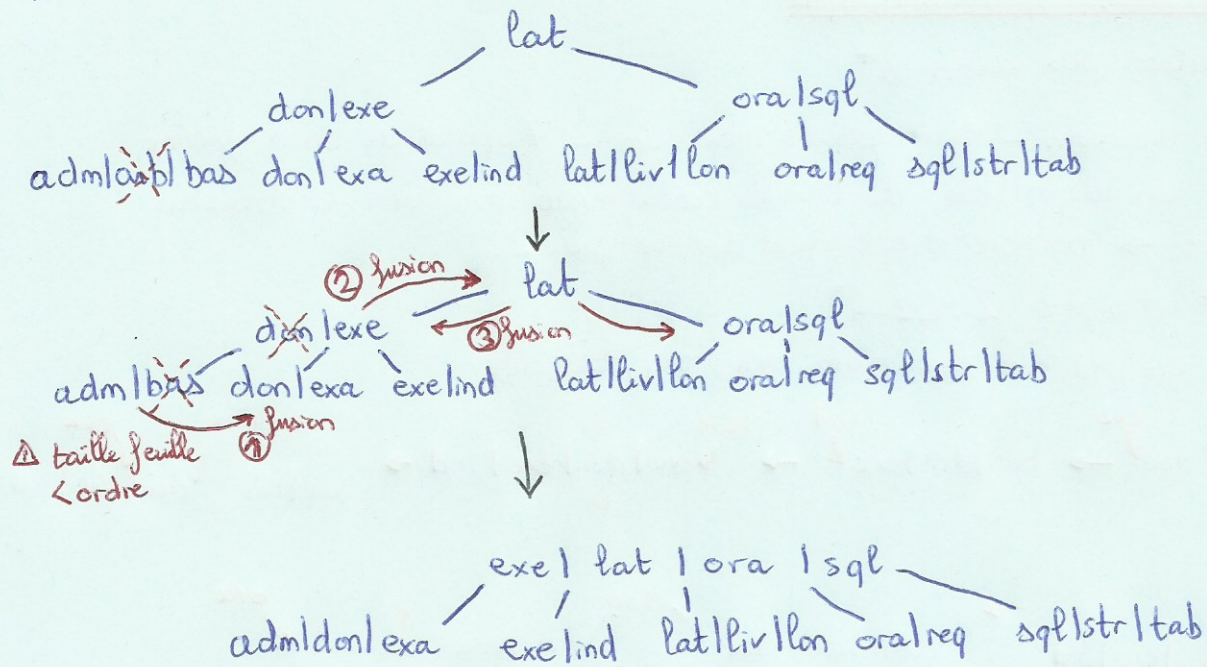 lat
don|exe ora|sql
adm|asb|bas don|exa exe|ind lat|liv|lon ora|req sql|str|tab
② fusion lat
don|exe ③ fusion ora|sql
adm|bas don|exa exe|ind lat|liv|lon ora|req sql|str|tab
① fusion
⚠ taille feuille
< ordre
exe| lat | ora | sql
adm|don|exa exe|ind lat|liv|lon ora|req sql|str|tab